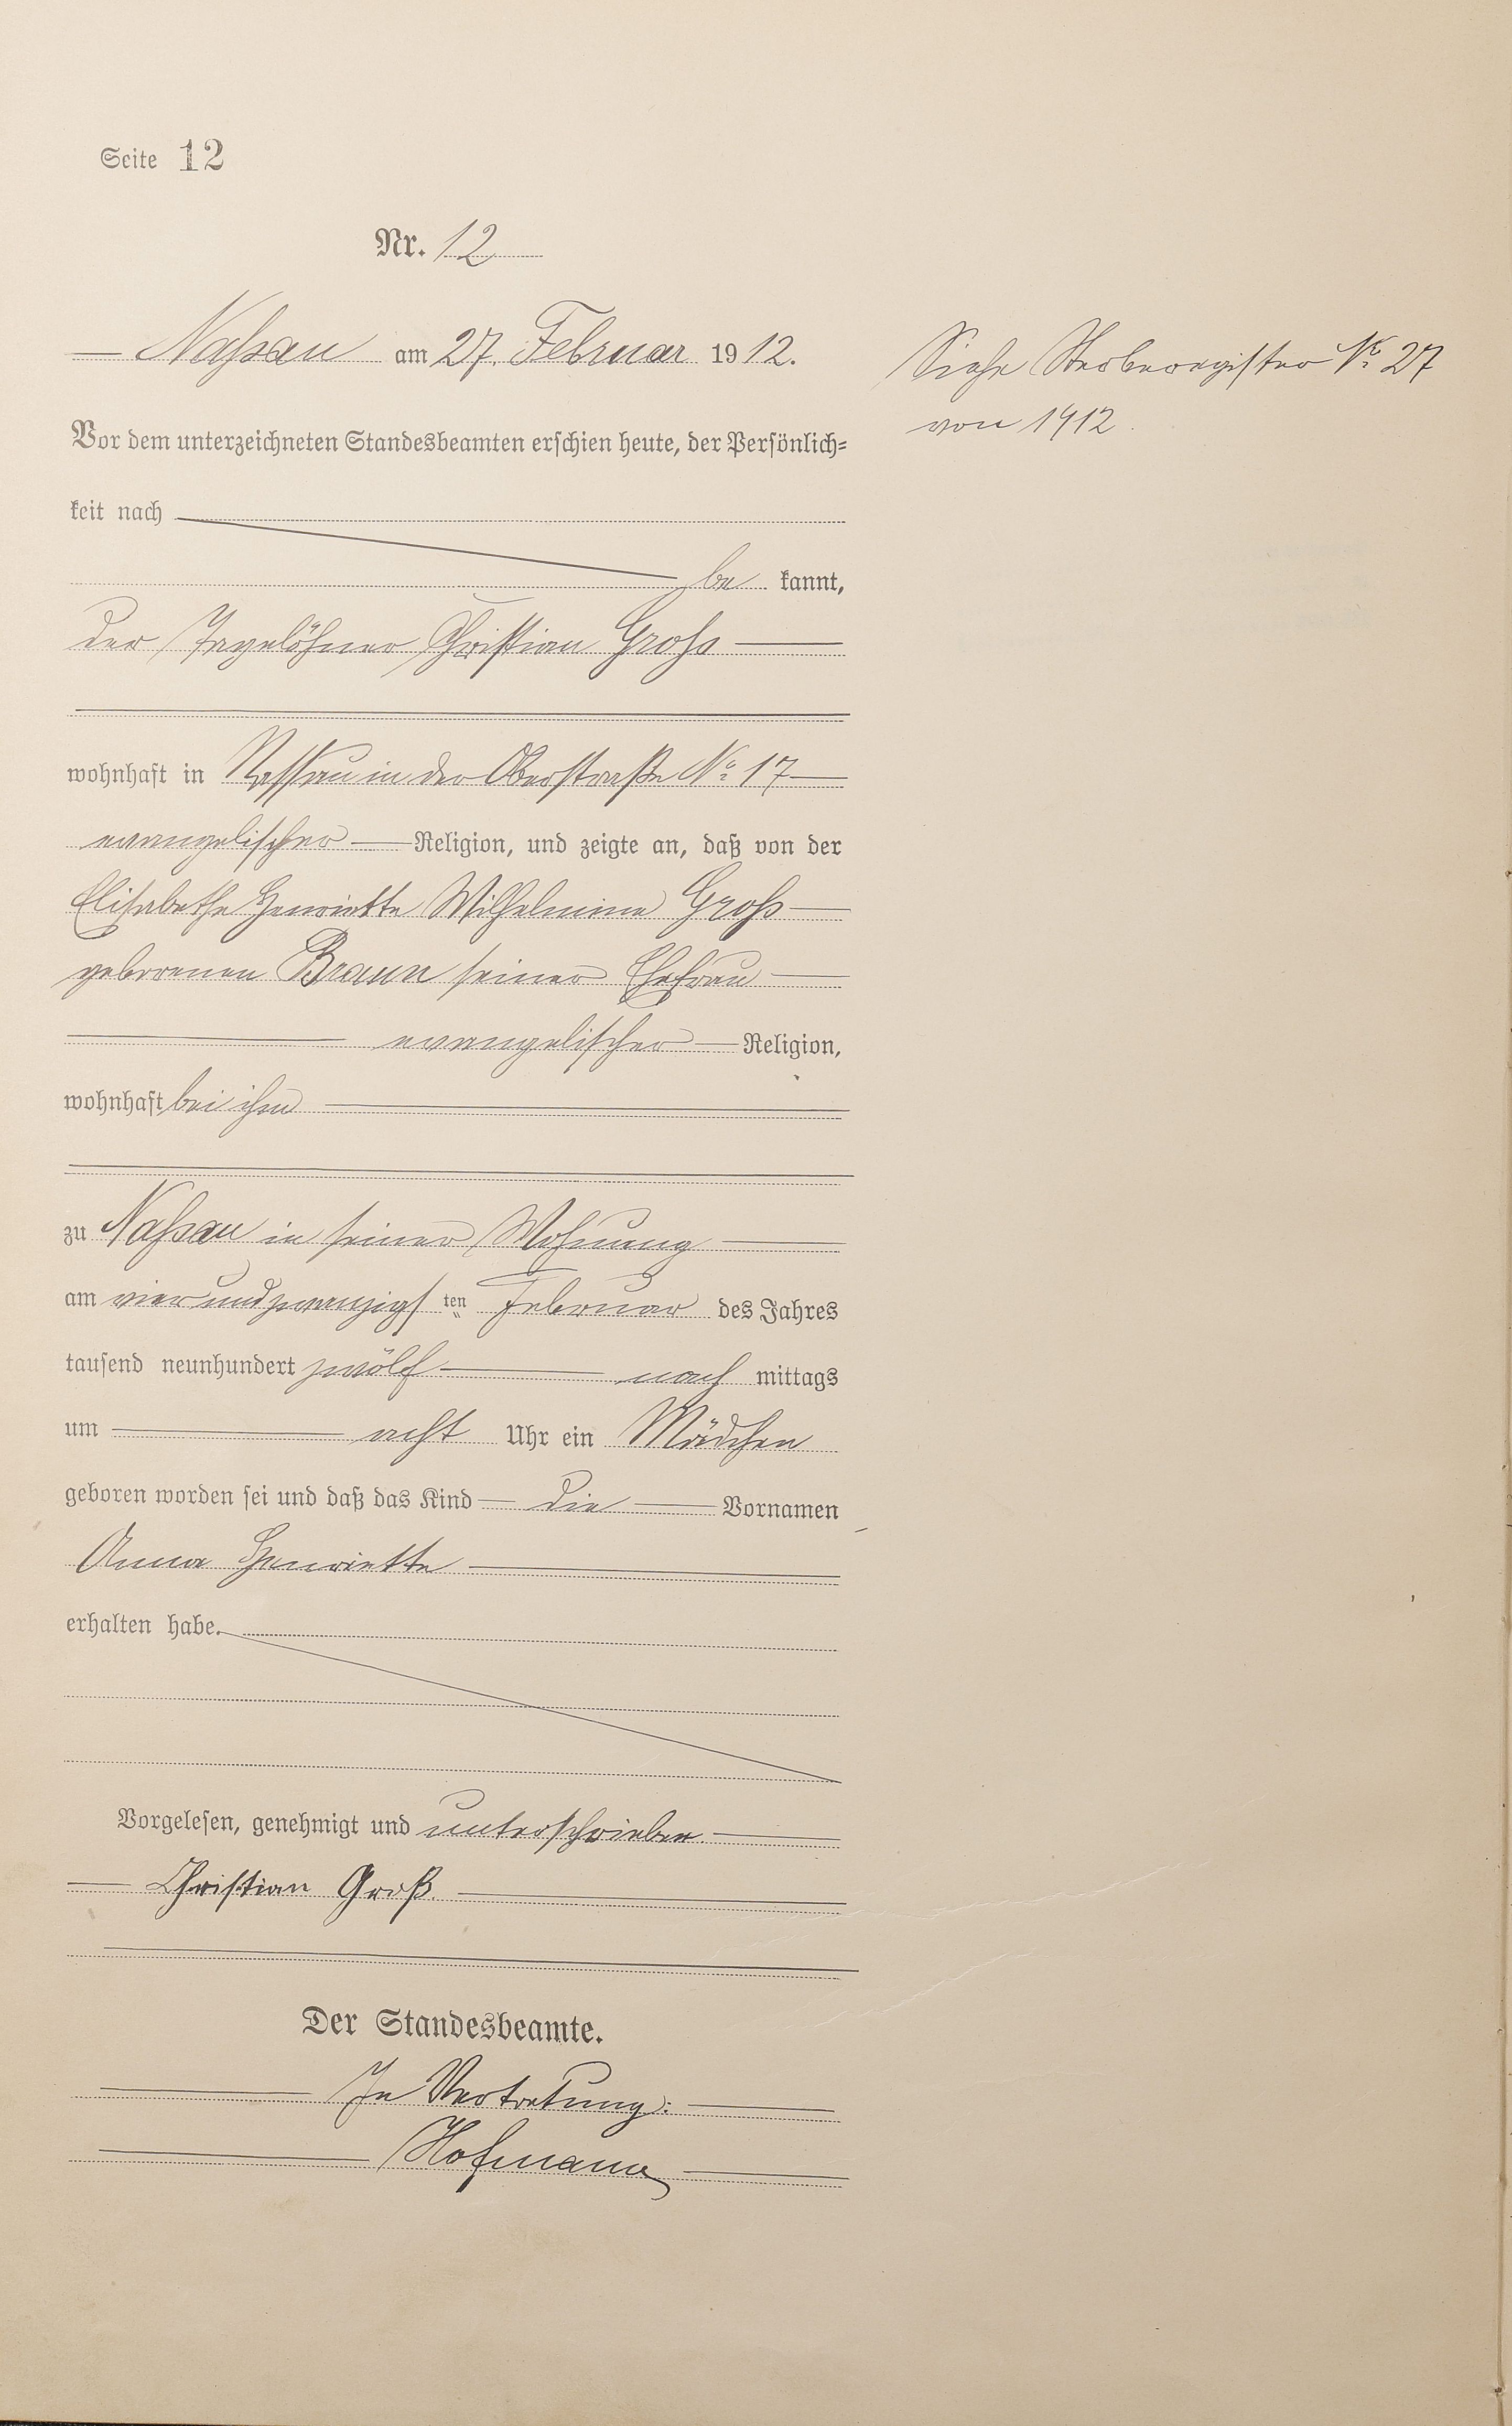 Seite 12
Nr. 12
Nassau am 27. Februar 1912.
Siehe Sterberegister No 27
von 1912.
Vor dem unterzeichneten Standesbeamten erschien heute, der Persönlich=
keit nach
be kannt,
der Tagelöhner Christian Gross
wohnhaft in Nassau in der Oberstraße No 17
evangelischer Religion, und zeigte an, daß von der
Elisabethe Henriette Wilhelmine Gross
geborenen Braun seiner Ehefrau
evangelischer Religion,
wohnhaft bei ihm
zu Nassau in seiner Wohnung
am vierundzwanzigsten Februar des Jahres
tausend neunhundert zwölf nach mittags
um acht Uhr ein Mädchen
geboren worden sei und daß das Kind die Vornamen
Anna Henriette
erhalten habe.
Vorgelesen, genehmigt und unterschrieben
Christian Groß
Der Standesbeamte.
In Vertretung:
Hofmann